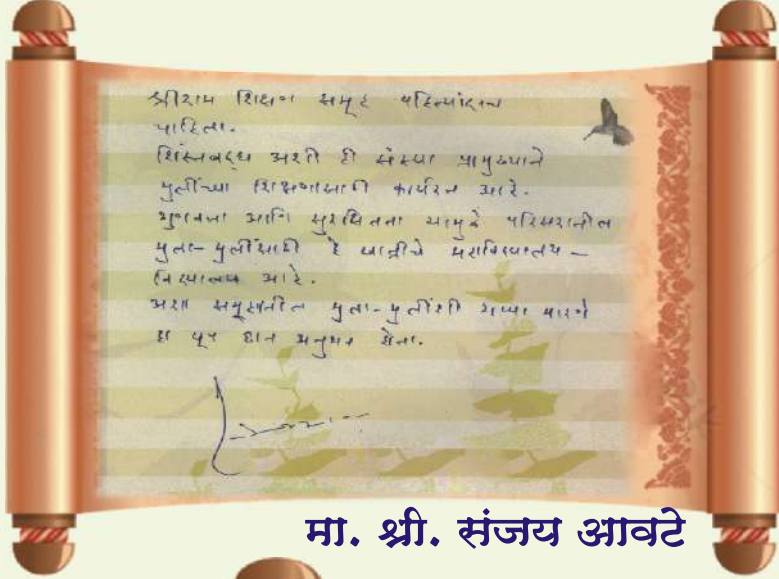 श्रीराम शिक्षण समूह पहिल्यांदाच
पाहिला.
शिस्तबद्ध अशी ही संस्था प्रामुख्याने
मुलींच्या शिक्षणासाठी कार्यरत आहे.
गुणवत्ता आणि सुरक्षितता यामुळे परिसरातील
मुला-मुलींसाठी हे खात्रीचे महाविद्यालय -
विद्यालय आहे.
अशा समूहातील मुला-मुलींशी गप्पा मारणे
हा छान अनुभव होता.
मा. श्री. संजय आवटे